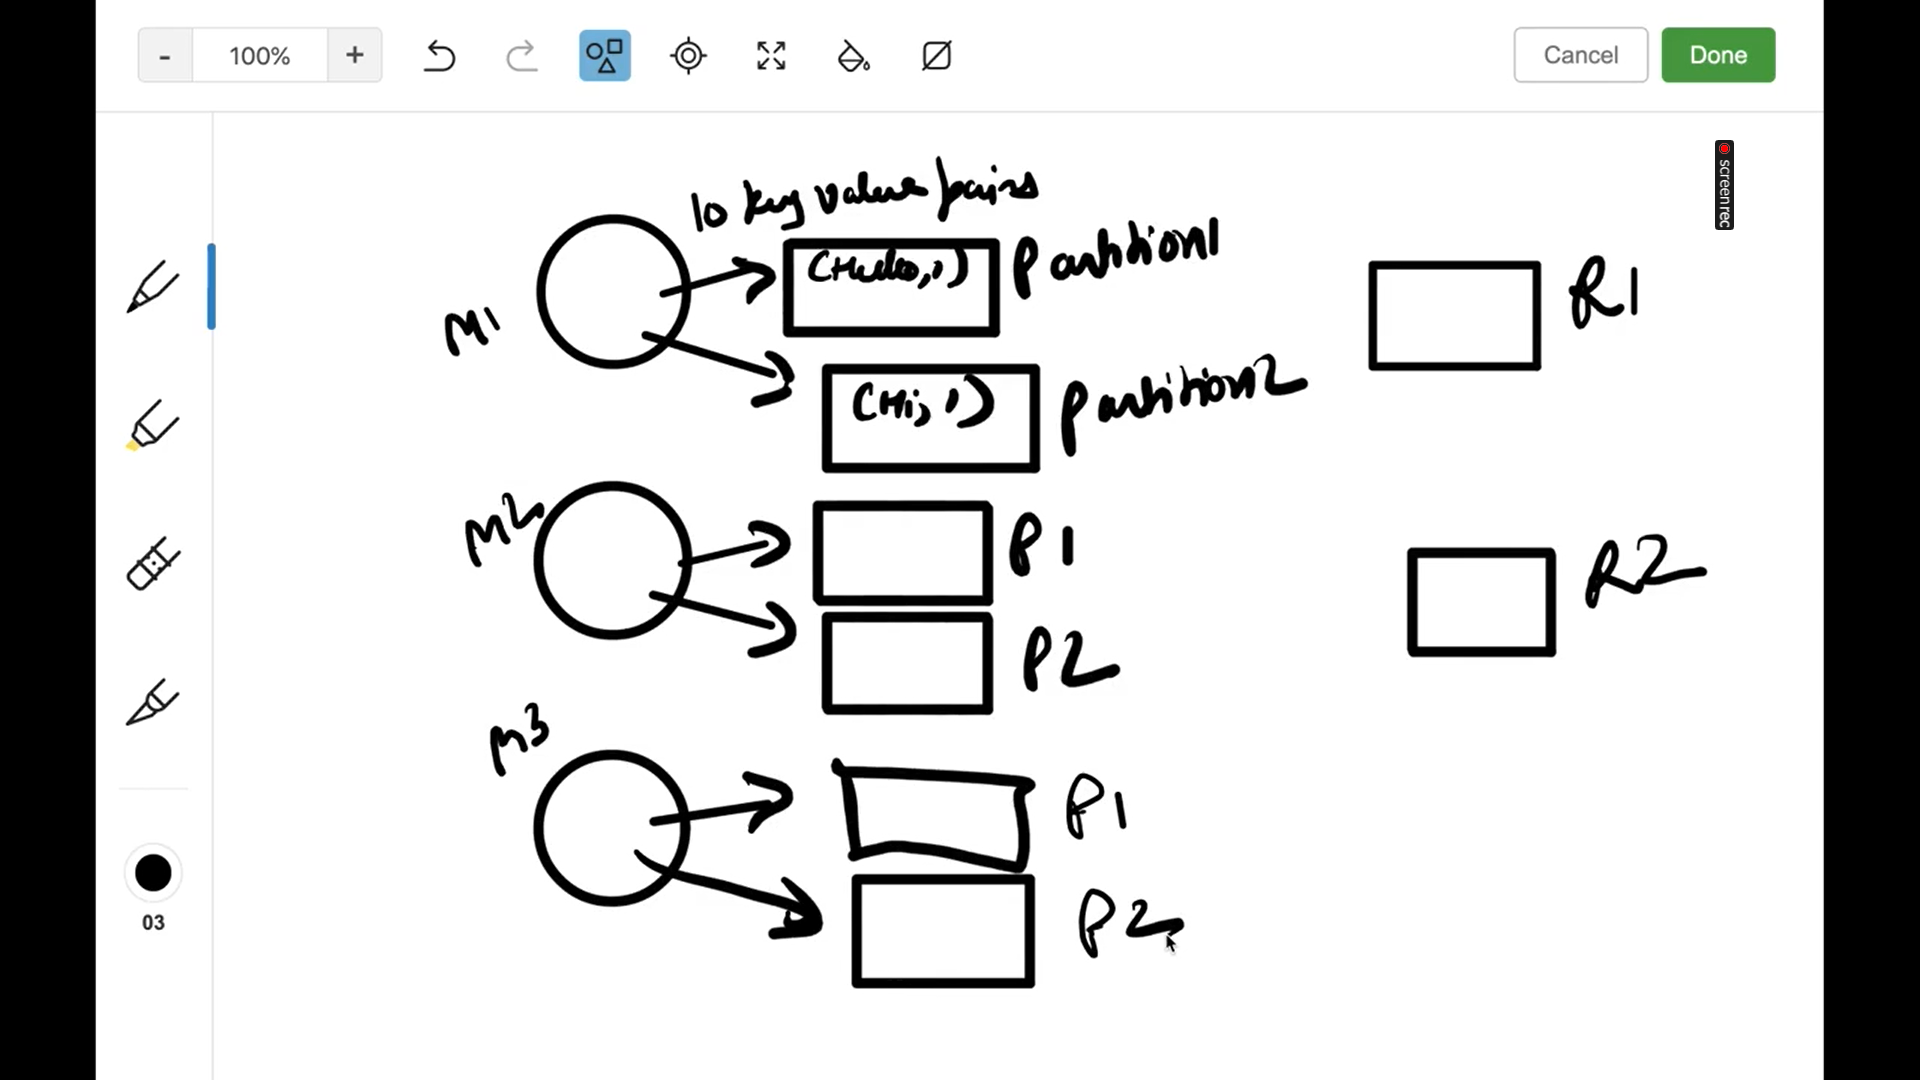 - 100% + Cancel Done
screenrec
10 key value pairs
(Hello, 1) Partition1
M1
R1
(Hi, 1) Partition2
M2
P1
R2
P2
M3
P1
P2
03